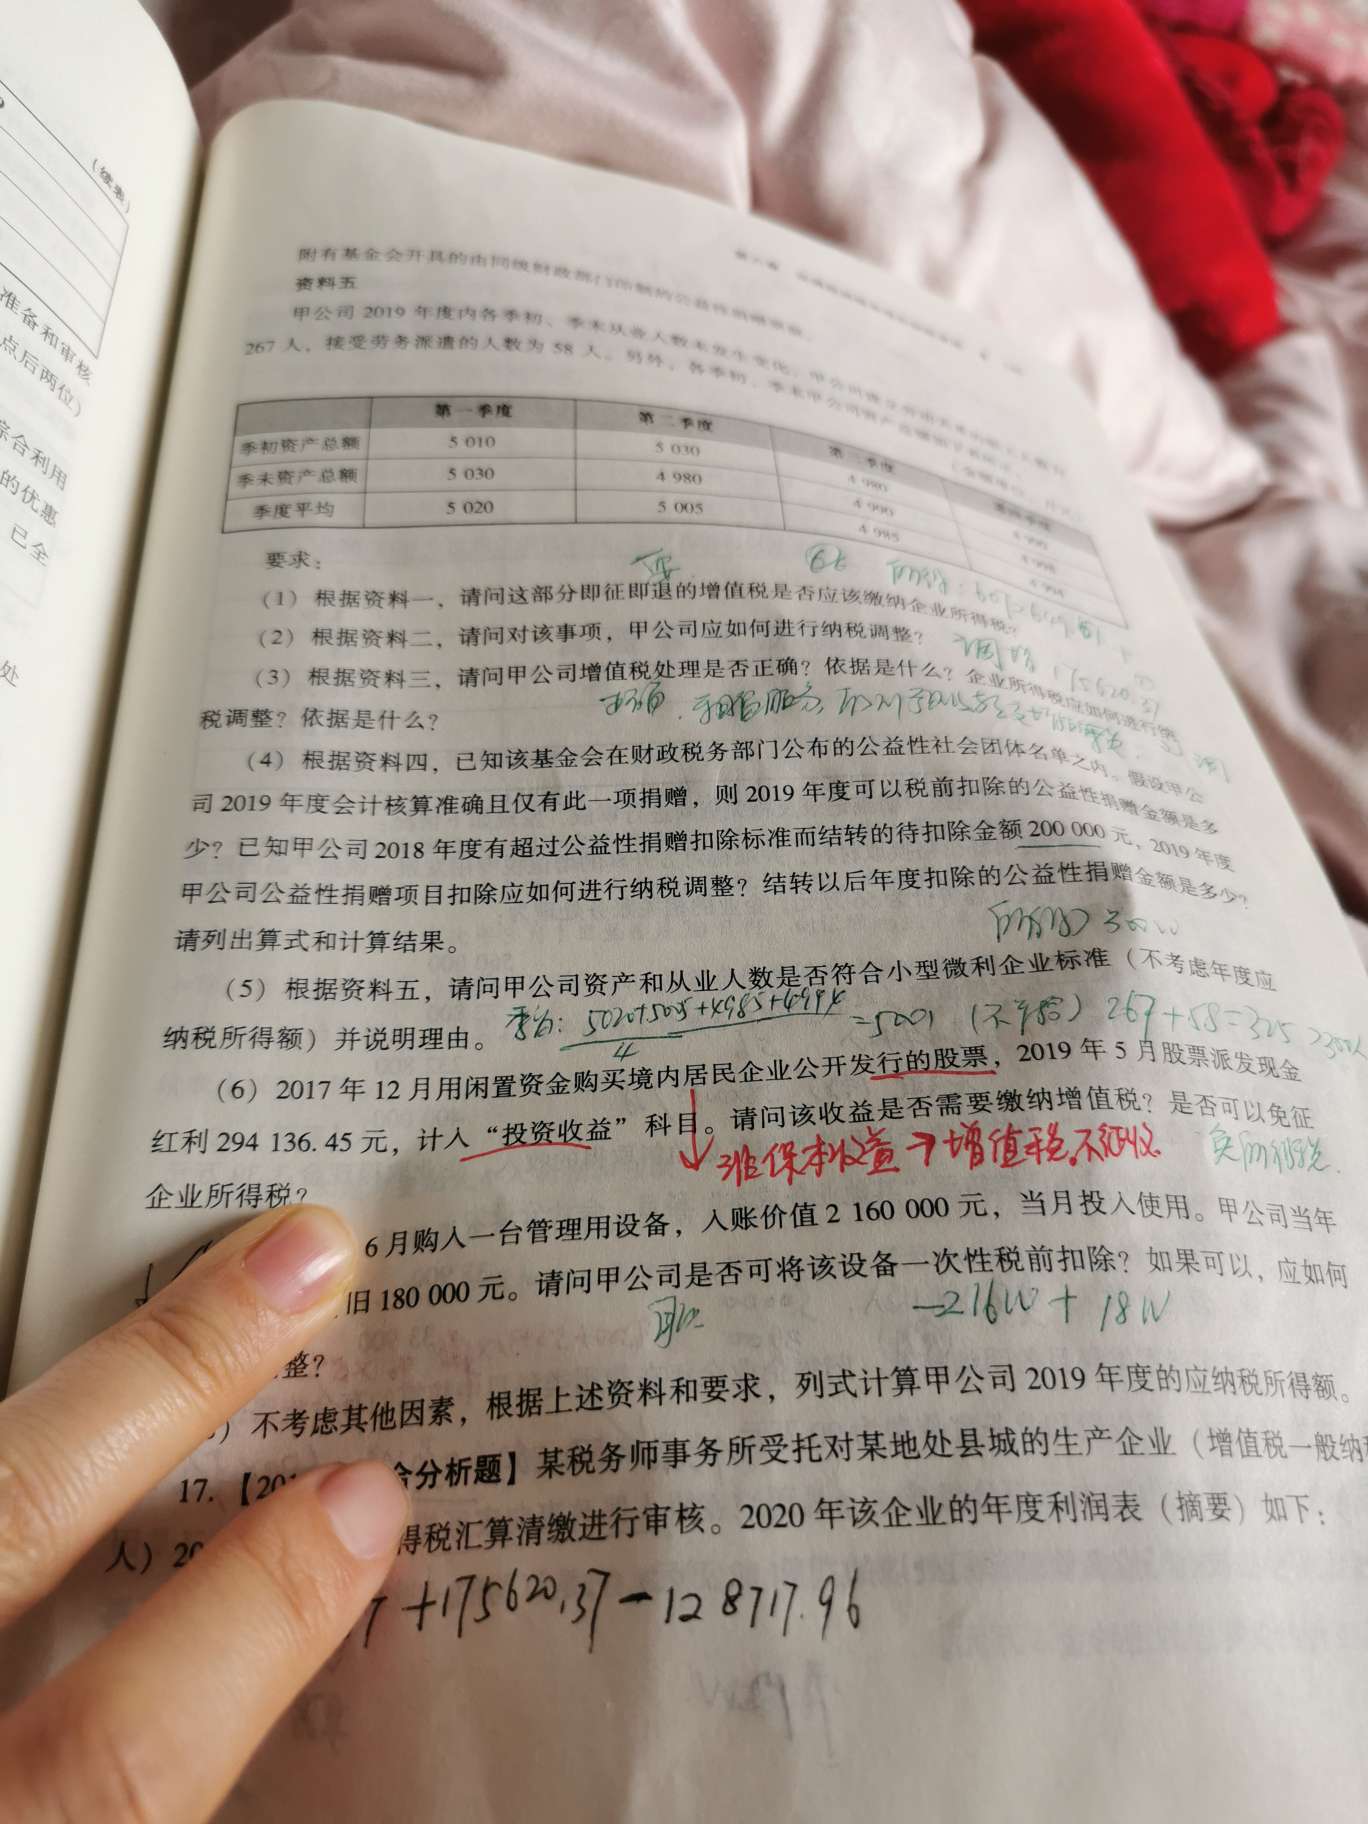 (续表)
准备和审核
点后两位)
综合利用
的优惠
已全
处
附有基金会开具的由同级财政部门印制的公益性捐赠票据。
资料五
甲公司 2019 年度内各季初、季末从业人数未发生变化,
267 人，接受劳务派遣的人数为 58 人。另外，各季初、季末甲公司资产总额如下
第一季度 第二季度 第三季度 第四季度
季初资产总额 5 010 5 030 4 980 4 990
季末资产总额 5 030 4 980 4 990 4 998
季度平均 5 020 5 005 4 985 4 994
要求：
(1) 根据资料一，请问这部分即征即退的增值税是否应该缴纳企业所得税？
(2) 根据资料二，请问对该事项，甲公司应如何进行纳税调整？
调增 175620.37
(3) 根据资料三，请问甲公司增值税处理是否正确？依据是什么？企业所得税应如何进行纳
税调整？依据是什么？
(4) 根据资料四，已知该基金会在财政税务部门公布的公益性社会团体名单之内。假设甲公
司 2019 年度会计核算准确且仅有此一项捐赠，则 2019 年度可以税前扣除的公益性捐赠金额是多
少？已知甲公司 2018 年度有超过公益性捐赠扣除标准而结转的待扣除金额 200 000 元，2019 年度
甲公司公益性捐赠项目扣除应如何进行纳税调整？结转以后年度扣除的公益性捐赠金额是多少？
请列出算式和计算结果。
(5) 根据资料五，请问甲公司资产和从业人数是否符合小型微利企业标准（不考虑年度应
纳税所得额）并说明理由。
5020+5005+4985+4994
4
=5001 (不符合) 267+58=325 >300人
(6) 2017 年 12 月用闲置资金购买境内居民企业公开发行的股票，2019 年 5 月股票派发现金
红利 294 136. 45 元，计入“投资收益”科目。请问该收益是否需要缴纳增值税？是否可以免征
非保本收益→增值税不征收
免所得税
企业所得税？
6 月购入一台管理用设备，入账价值 2 160 000 元，当月投入使用。甲公司当年
旧 180 000 元。请问甲公司是否可将该设备一次性税前扣除？如果可以，应如何
可以
-216W + 18W
整？
）不考虑其他因素，根据上述资料和要求，列式计算甲公司 2019 年度的应纳税所得额。
17. 【201 合分析题】某税务师事务所受托对某地处县城的生产企业（增值税一般纳税
人）20 得税汇算清缴进行审核。2020 年该企业的年度利润表（摘要）如下：
7 +175620.37-128717.96